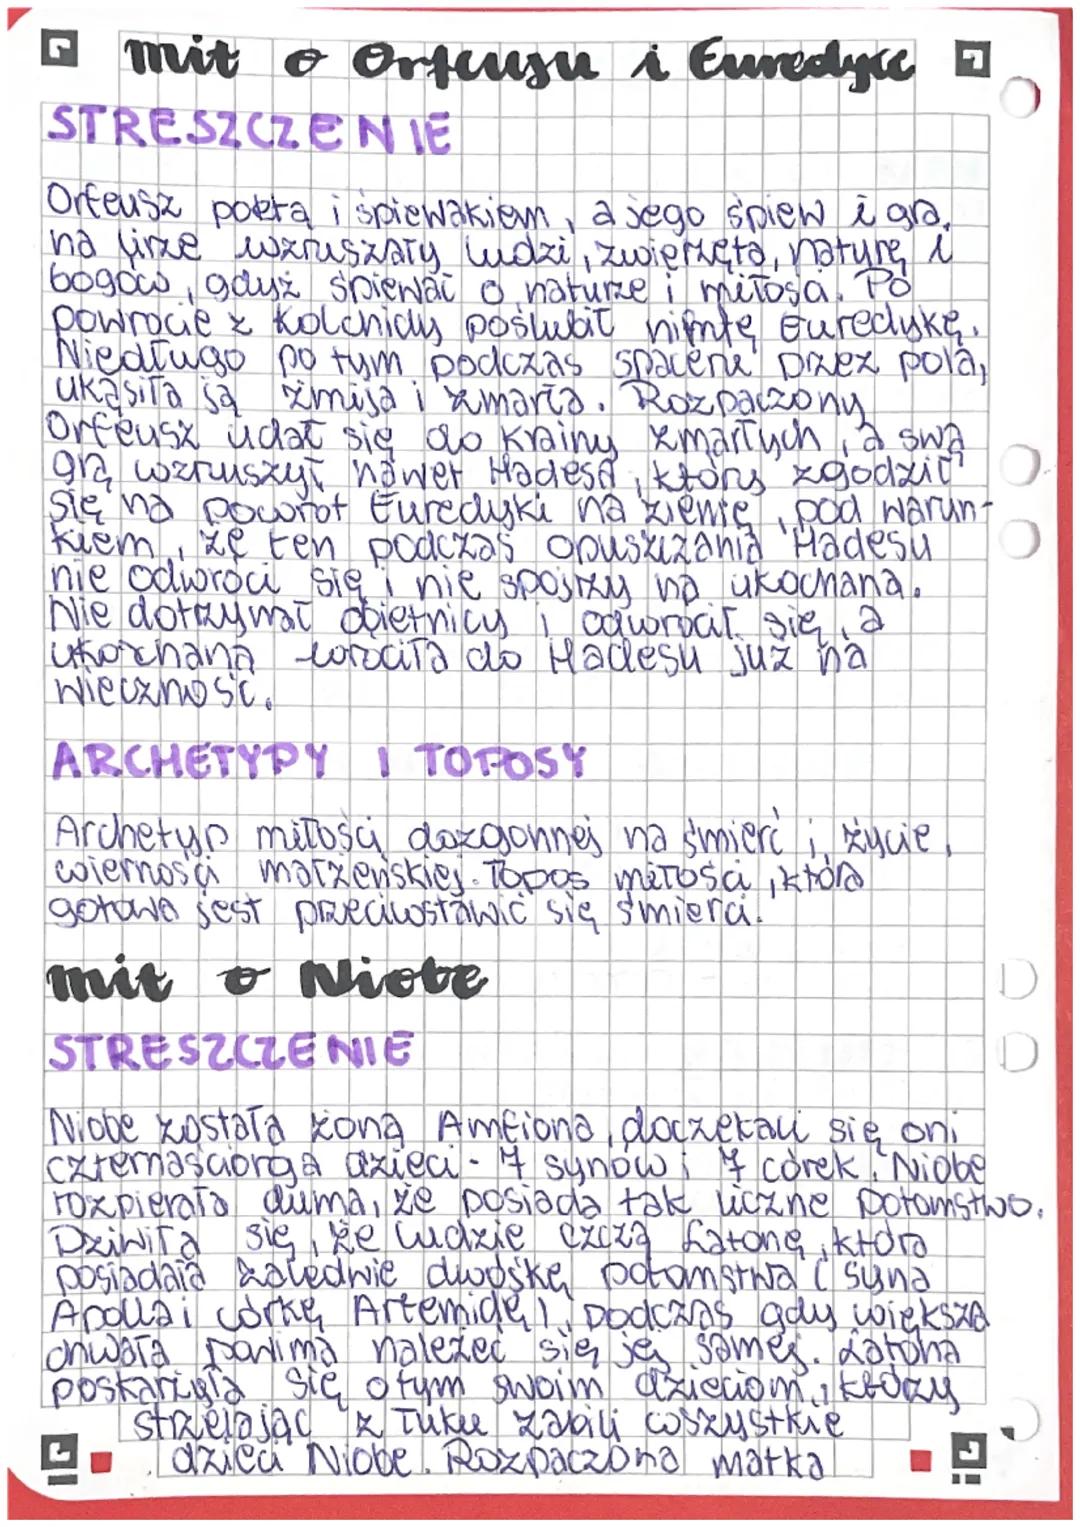 mit o Orfeuszu i Euredyce
STRESZCZENIE
Orfeusz poetą i śpiewakiem, a jego śpiew i gra
na lirze wzruszały ludzi, zwierzęta, naturę i
bogów, gdyż śpiewać o naturze i miłości. Po
powrocie z Kolchidy poślubił nimfę Euredykę.
Niedługo po tym podczas spaceru przez pola,
ukąsiła ją żmija i zmarła. Rozpaczony
Orfeusz udał się do krainy zmarłych, a swą
grą wzruszył nawet Hadesa, który zgodził
się na powrót Euredyki na ziemię, pod warun-
kiem, że ten podczas opuszczania Hadesu
nie odwróci się i nie spojrzy na ukochaną.
Nie dotrzymał obietnicy i odwrócił się, a
ukochana wróciła do Hadesu już na
wieczność.
ARCHETYPY I TOPOSY
Archetyp miłości dozgonnej na śmierć i życie,
wierności małżeńskiej. Topos miłości, która
gotowa jest przeciwstawić się śmierci.
mit o Niobe
STRESZCZENIE
Niobe została żoną Amfiona, doczekali się oni
czternaściorga dzieci - 7 synów i 7 córek. Niobe
rozpierała duma, że posiada tak liczne potomstwo.
Dziwiła się, że ludzie czczą Latonę, która
posiadała zaledwie dwójkę potomstwa (syna
Apolla i córkę Artemidę), podczas gdy większa
chwała powinna należeć się jej samej. Latona
poskarżyła się o tym swoim dzieciom, którzy
strzelając z łuku zabili wszystkie
dzieci Niobe. Rozpaczona matka